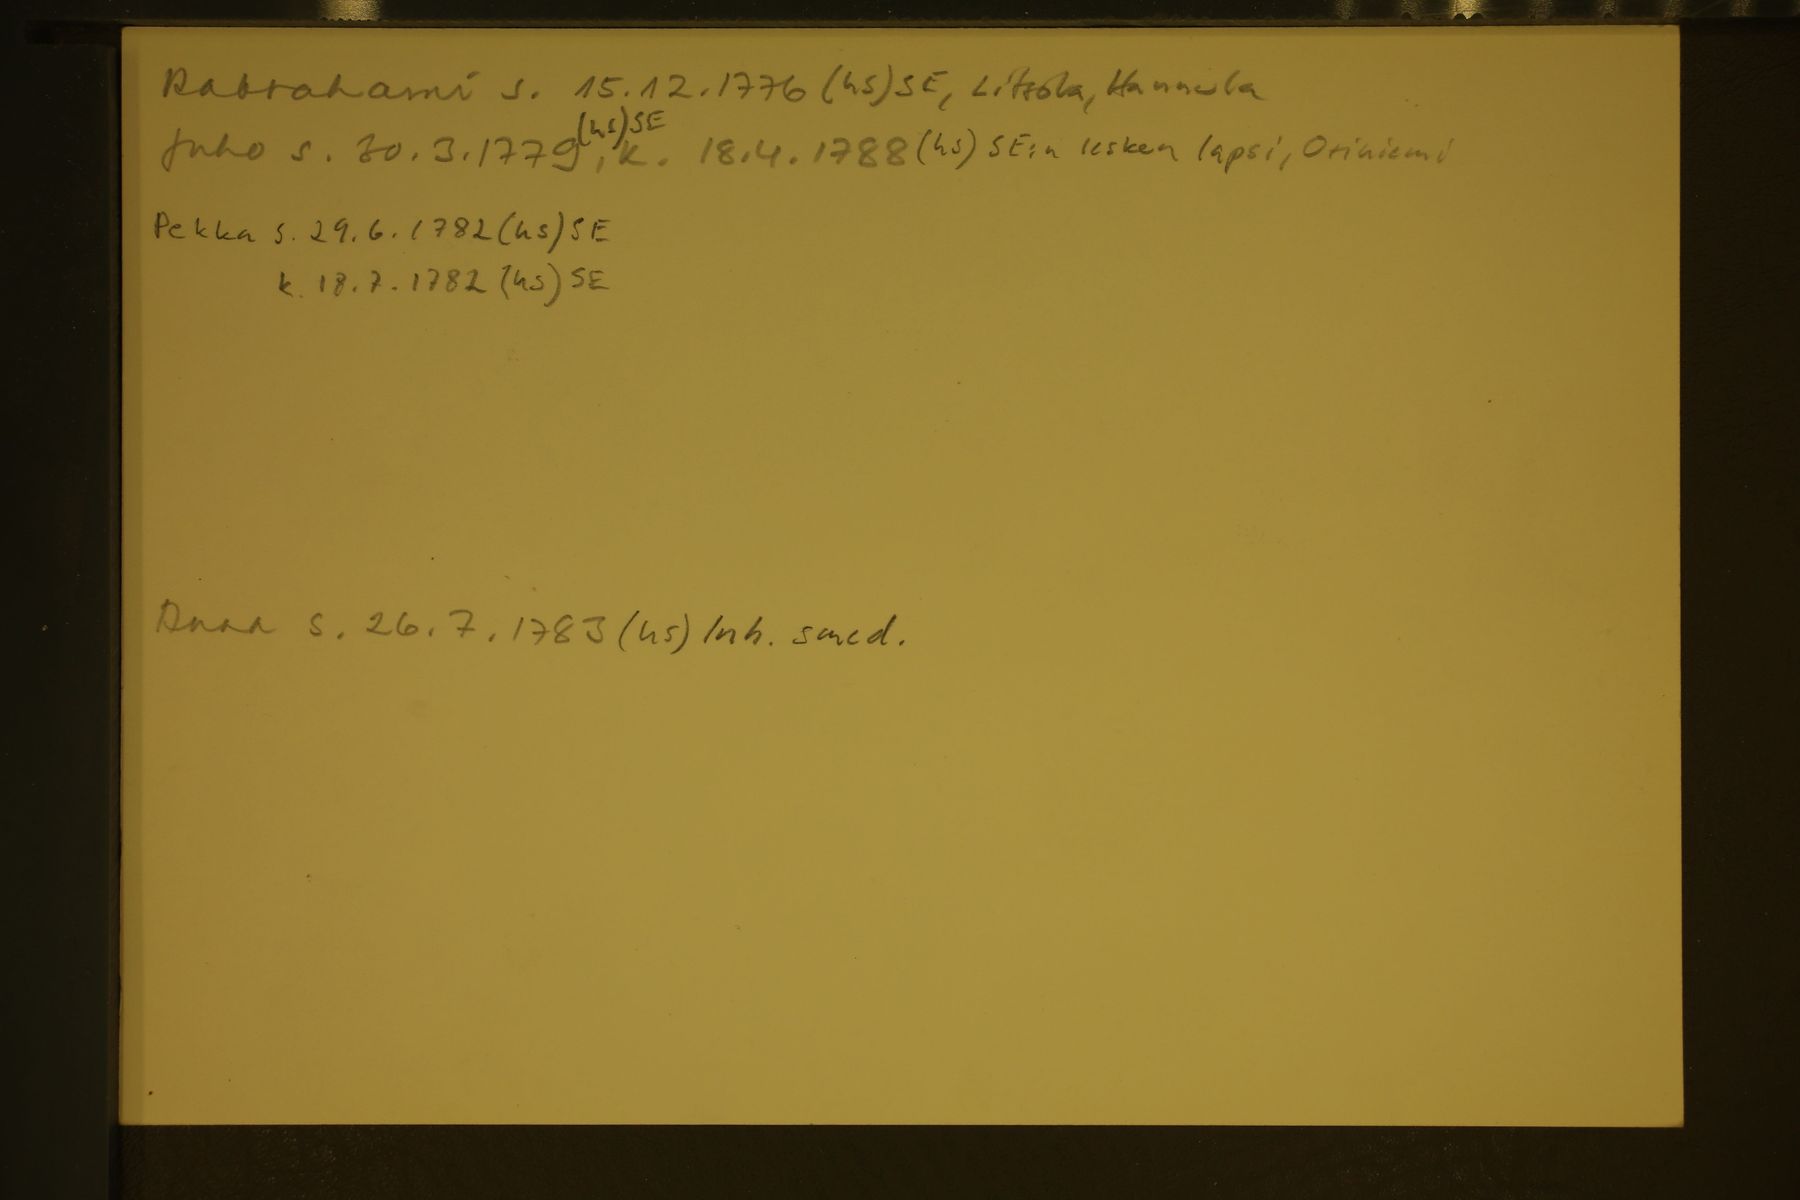 Aabrahami s. 15.12.1776 (hs) SE, Litzola, Hannula
Juho s. 30.3.1779 (hs) SE, k. 18.4.1788 (hs) SE:n lesken lapsi, Oriniemi
Pekka s. 29.6.1782 (hs) SE
k. 18.7.1782 (hs) SE
Anna s. 26.7.1783 (hs) Inh. smed.